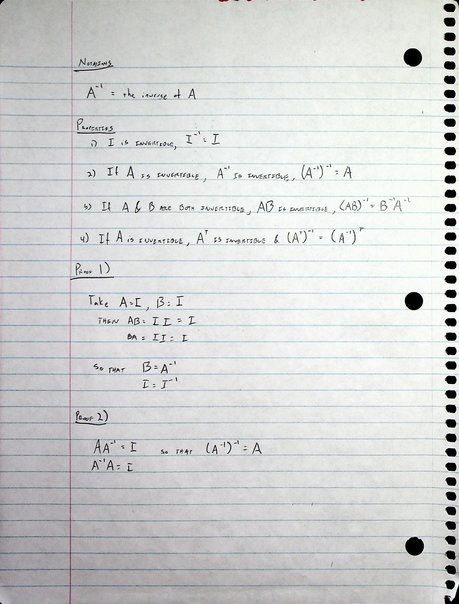 NOTATIONS
A⁻¹ = the inverse of A
PROPERTIES
1) I IS INVERTIBLE, I⁻¹ = I
2) If A IS INVERTIBLE, A⁻¹ IS INVERTIBLE, (A⁻¹)⁻¹ = A
3) If A & B ARE BOTH INVERTIBLE, AB IS INVERTIBLE, (AB)⁻¹ = B⁻¹A⁻¹
4) If A IS INVERTIBLE, Aᵀ IS INVERTIBLE & (Aᵀ)⁻¹ = (A⁻¹)ᵀ
PROOF 1)
Take A=I, B=I
THEN AB = II = I
BA = II = I
SO THAT B = A⁻¹
I = I⁻¹
PROOF 2)
AA⁻¹ = I SO THAT (A⁻¹)⁻¹ = A
A⁻¹A = I